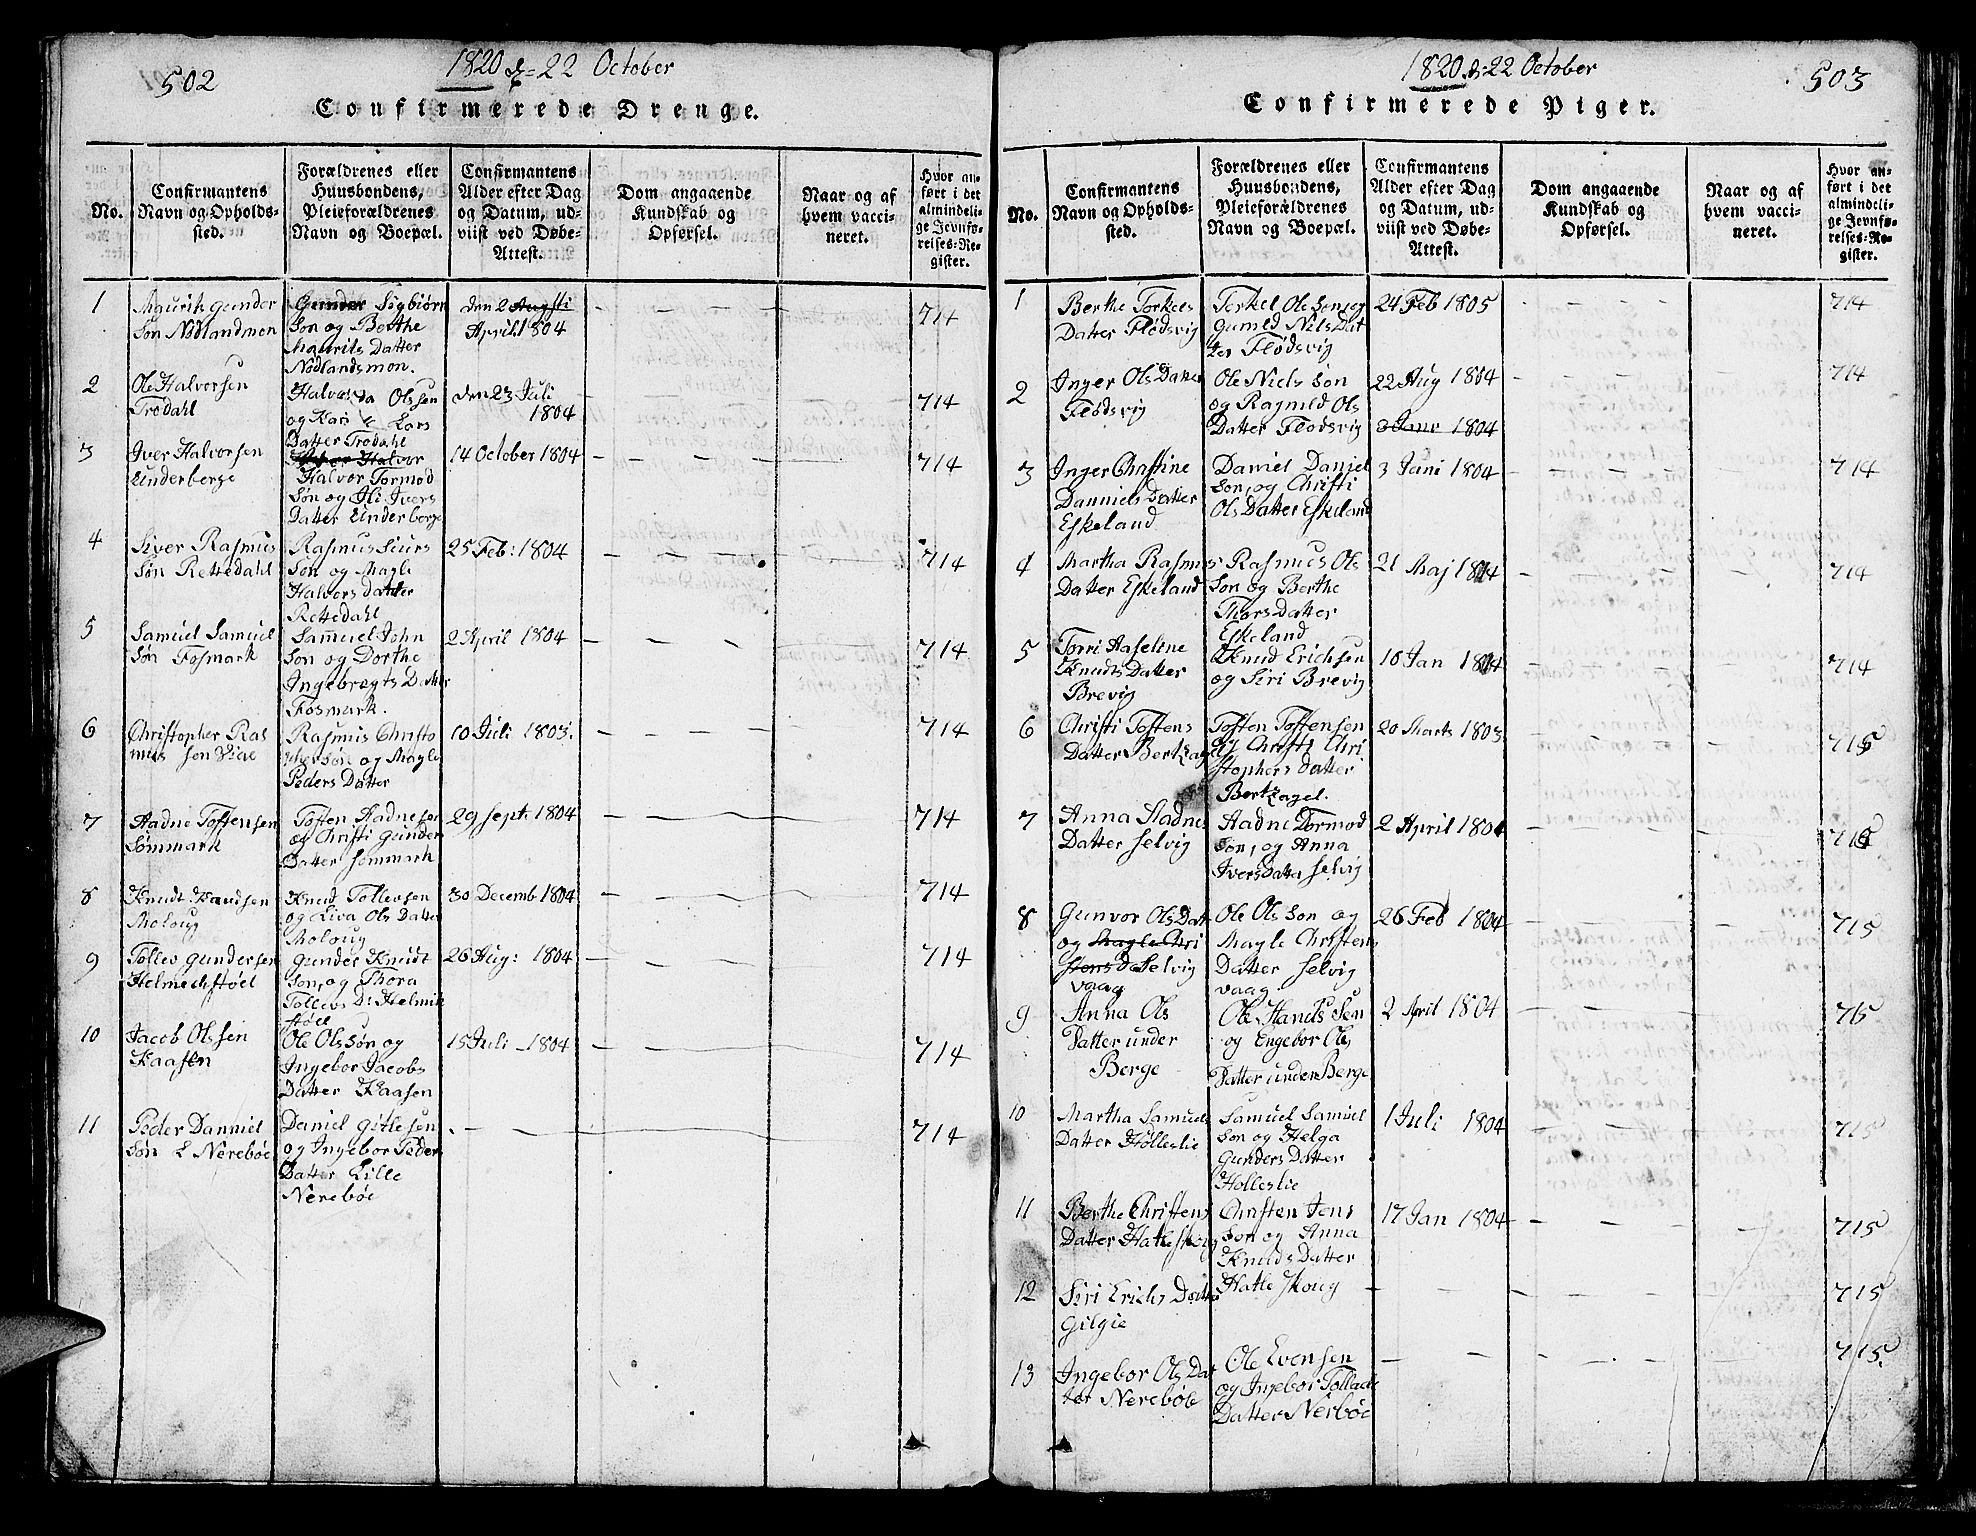 502
1820 d= 22 October
Confirmerede Drenge.
No.
Confirmantens
Navn og Opholds-
sted.
Forældrenes eller
Huusbondens,
Pleieforældrenes
Navn og Boepæl.
Confirmantens
Alder efter Dag
og Datum, ud-
viist ved Døbe-
Attest.
Dom angaaende
Kundskab og
Opførsel.
Naar og af
hvem vacci-
neret.
Hvor an-
ført i det
almindeli-
ge Jevnfø-
relses-Re-
gister.
1
Maurik Gunder
Søn Nødlandmon
Gunder Sigbiørn
Søn og Berthe
Maurits Datter
Nødlandsmon.
den 2 Augsti
April 1804
714
2
Ole Halvorsen
Trodahl
Halvor Olssen
og Kari Lars
Datter Trodahl
den 23 Juli
1804
714
3
Iver Halvorsen
Underberge
Halvor
Halvor Tormod
Søn og Ili Ivers
Datter Underberge
14 October 1804
714
4
Siver Rasmus
Søn Rettedahl
Rasmus Siurs
Søn og Magli
Halvors datter
Rettedahl
25 Feb: 1804
714
5
Samuel Samuel
Søn Fosmark
Samuel John
Søn og Dorthe
Ingebregts Datter
Fosmark.
2 April 1804
714
6
Christopher Ras
mus søn Viae
Rasmus Christo
phersøn og Magle
Peders Datter
10 Juli 1803.
714
7
Aadne Tostensen
Sømmark
Tosten Aadnesen
og Christi Gunder
Datter Sømmark
29 Sept. 1804
714
8
Knudt Knudsen
Moloug
Knud Tollevsen
og Liva Ols Datter
Moloug
30 Decemb 1804
714
9
Tollev Gundersen
Helmichstøel
Gunder Knudt
Søn, og Thora
Tollevs D: Helmik
støel
26 Aug: 1804
714
10
Jacob Olssen
Kaasen
Ole Olssøn og
Ingebor Jacobs
Datter Kaasen
15 Juli - 1804
714
11
Peder Danniel
Søn L Nerebøe
Daniel Gitlesen
og Ingebor Peder
Datter Lille
Nerebøe
714
503
1820 d: 22 October
Confirmerede Piger.
No.
Confirmantens
Navn og Opholds-
sted.
Forældrenes eller
Huusbondens,
Pleieforældrenes
Navn og Boepæl.
Confirmantens
Alder efter Dag
og Datum, ud-
viist ved Døbe-
Attest.
Dom angaaende
Kundskab og
Opførsel.
Naar og af
hvem vacci-
neret.
Hvor an-
ført i det
almindeli-
ge Jevnfø-
relses-Re-
gister.
1
Berthe Torkels
Datter Flødsvig
Torkel Ole Søn, og
Gunild Nils Dat
ter Flødsvig
24 Feb 1805
714
2
Inger Ols Datter
Flødsvig
Ole Niels Søn
og Ragnild Ols
Datter Flødsvig
22 Aug 1804
3 Janr 1804
714
3
Inger Christine
Danniels Datter
Eskeland
Daniel Daniel
Søn, og Christi
Ols Datter Eskeland
3 Juni 1804
714
4
Martha Rasmus
Datter Eskeland
Rasmus Ols
Søn og Berthe
Thors Datter
Eskeland
21 Maj 1804
714
5
Torri Aaselene
Knudts Datter
Brevig
Knud Erichsen
og Siri Brevig
10 Jan 1804
714
6
Christi Tostens
Datter Bertzagel
Tosten Tostensen
og Christi Chri
stophers datter
Bertzagel.
20 Marts 1803.
715
7
Anna Aadnes
Datter Selvig
Aadne Tormod
Søn, og Anna
Iversdatter Selvig
2 April 1804
715
8
Gunvor Ols Datt
og Magle Chri
stens Da Selvig
vaag
Ole Ols Søn og
Magle Christens
Datter Selvig
vaag.
26 Feb 1804
715
9
Anna Ols
Datter under
Berge
Ole Hands Sen
og Engebor Ols
Datter under Berge
2 April 1804
715
10
Martha Samuels
Datter Hølleslie
Samuel Samuel
Søn og Helga
Gunders Datter
Holleslie
1 Juli 1804
715
11
Berthe Christens
Datter Hatleskoug
Christen Jens
Søn og Anna
Knuds Datter
Hatle skoug
17 Jan 1804
715
12
Siri Erichs Datter
Gilgie
715
13
Ingebor Ols Dat
ter Nerebøe
Ole Evensen
og Ingebor Tollach
Datter Nerbøe
715.